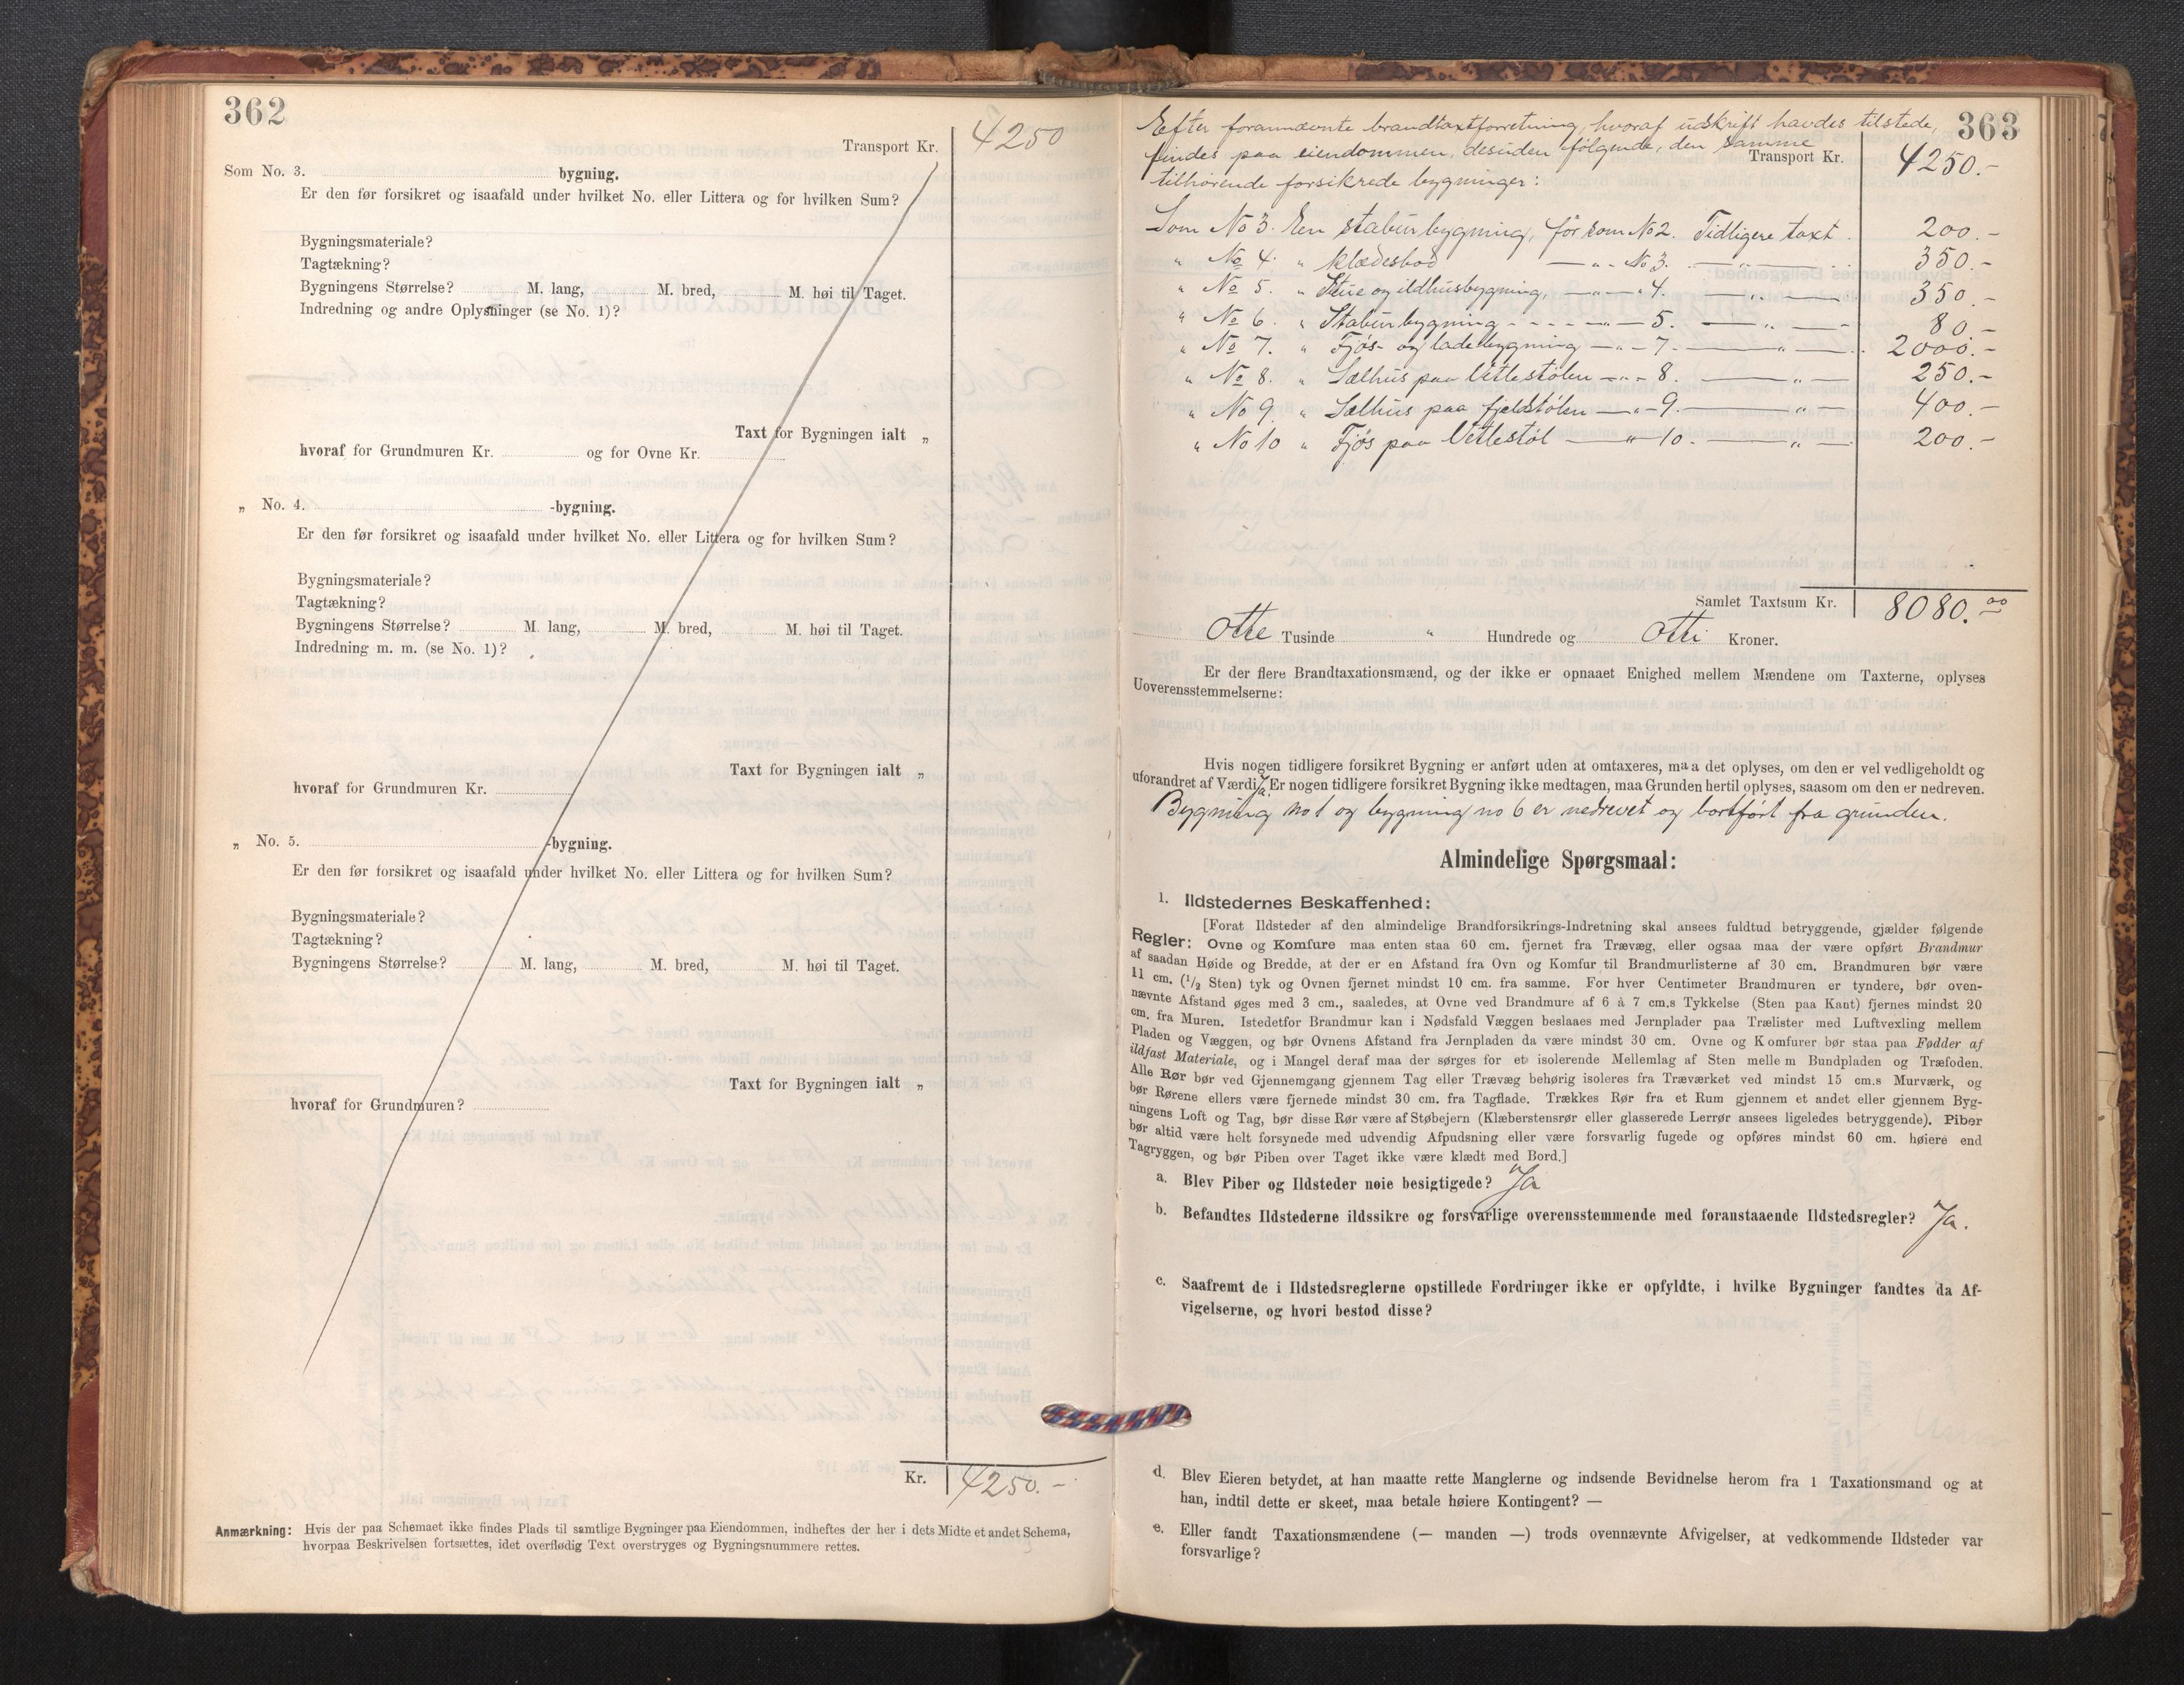 362
Transport Kr. 4250
Som No. 3. bygning.
Er den før forsikret og isaafald under hvilket No. eller Littera og for hvilken Sum?
Bygningsmateriale?
Tagtækning?
Bygningens Størrelse? M. lang, M. bred, M. høi til Taget.
Indredning og andre Oplysninger (se No. 1)?
Taxt for Bygningen ialt „
hvoraf for Grundmuren Kr. og for Ovne Kr.
„ No. 4. -bygning.
Er den før forsikret og isaafald under hvilket No. eller Littera og for hvilken Sum?
Bygningsmateriale?
Tagtækning?
Bygningens Størrelse? M. lang, M. bred, M. høi til Taget.
Indredning m. m. (se No. 1)?
Taxt for Bygningen ialt „
hvoraf for Grundmuren Kr.
„ No. 5. -bygning.
Er den før forsikret og isaafald under hvilket No. eller Littera og for hvilken Sum?
Bygningsmateriale?
Tagtækning?
Bygningens Størrelse? M. lang, M. bred, M. høi til Taget.
Taxt for Bygningen ialt „
hvoraf for Grundmuren?
Kr. 4250.-
Anmærkning: Hvis der paa Schemaet ikke findes Plads til samtlige Bygninger paa Eiendommen, indheftes der her i dets Midte et andet Schema,
hvorpaa Beskrivelsen fortsættes, idet overflødig Text overstryges og Bygningsnummere rettes.
363
Efter forannævnte brandtaxtforretning, hvoraf udskrift havdes tilstede,
findes paa eiendommen, desuden følgende, den samme
Transport Kr. 4250.-
tilhørende forsikrede bygninger:
Som No 3. En staburbygning, før som No 2. Tidligere taxt. 200.-
„ No 4. „ klædesbod — „ - No 3. — „ — 350.-
„ No 5. „ Stue og ildhusbygning, — „ — 4. — „ — 350.-
„ No 6. „ Staburbygning - - - - — „ — 5. — „ — 80.-
„ No 7. „ Fjøs- og ladebygning — „ - 7. — „ — 2000.-
„ No 8. „ Sælhus paa Vetlestølen — „ - 8. — „ — 250.-
„ No 9. „ Sælhus paa fjeldstølen — „ - 9. — „ — 400.-
„ No 10 „ Fjøs paa Vetlestøl — „ — 10. — „ — 200.-
Samlet Taxtsum Kr. 8080.00
Otte Tusinde „ Hundrede og Otti Kroner.
Er der flere Brandtaxationsmænd, og der ikke er opnaaet Enighed mellem Mændene om Taxterne, oplyses
Uoverensstemmelserne:
Hvis nogen tidligere forsikret Bygning er anført uden at omtaxeres, maa det oplyses, om den er vel vedligeholdt og
uforandret af Værdi? Ja. Er nogen tidligere forsikret Bygning ikke medtagen, maa Grunden hertil oplyses, saasom om den er nedreven.
Bygning no 1 og bygning no 6 er nedrevet og bortført fra grunden.
Almindelige Spørgsmaal:
1. Ildstedernes Beskaffenhed:
[Forat Ildsteder af den almindelige Brandforsikrings-Indretning skal ansees fuldtud betryggende, gjælder følgende
Regler: Ovne og Komfure maa enten staa 60 cm. fjernet fra Trævæg, eller ogsaa maa der være opført Brandmur
af saadan Høide og Bredde, at der er en Afstand fra Ovn og Komfur til Brandmurlisterne af 30 cm. Brandmuren bør være
11 cm. (1/2 Sten) tyk og Ovnen fjernet mindst 10 cm. fra samme. For hver Centimeter Brandmuren er tyndere, bør oven-
nævnte Afstand øges med 3 cm., saaledes, at Ovne ved Brandmure af 6 à 7 cm.s Tykkelse (Sten paa Kant) fjernes mindst 20
cm. fra Muren. Istedetfor Brandmur kan i Nødsfald Væggen beslaaes med Jernplader paa Trælister med Luftvexling mellem
Pladen og Væggen, og bør Ovnens Afstand fra Jernpladen da være mindst 30 cm. Ovne og Komfurer bør staa paa Fødder af
ildfast Materiale, og i Mangel deraf maa der sørges for et isolerende Mellemlag af Sten mellem Bundpladen og Træfoden.
Alle Rør bør ved Gjennemgang gjennem Tag eller Trævæg behørig isoleres fra Træværket ved mindst 15 cm.s Murværk, og
bør Rørene ellers være fjernede mindst 30 cm. fra Tagflade. Trækkes Rør fra et Rum gjennem et andet eller gjennem Byg-
ningens Loft og Tag, bør disse Rør være af Støbejern (Klæberstensrør eller glasserede Lerrør ansees ligeledes betryggende). Piber
bør altid være helt forsynede med udvendig Afpudsning eller være forsvarlig fugede og opføres mindst 60 cm. høiere end
Tagryggen, og bør Piben over Taget ikke være klædt med Bord.]
a. Blev Piber og Ildsteder nøie besigtigede? Ja
b. Befandtes Ildstederne ildssikre og forsvarlige overensstemmende med foranstaaende Ildstedsregler? Ja.
c. Saafremt de i Ildstedsreglerne opstillede Fordringer ikke er opfyldte, i hvilke Bygninger fandtes da Af-
vigelserne, og hvori bestod disse?
d. Blev Eieren betydet, at han maatte rette Manglerne og indsende Bevidnelse herom fra 1 Taxationsmand og at
han, indtil dette er skeet, maa betale høiere Kontingent? —
e. Eller fandt Taxationsmændene (— manden —) trods ovennævnte Afvigelser, at vedkommende Ildsteder var
forsvarlige?